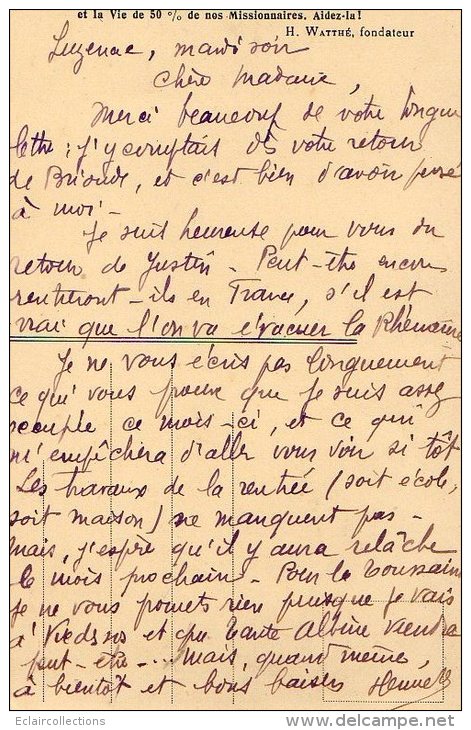 et la Vie de 50 % de nos Missionnaires. Aidez-la!
H. WATTHÉ, fondateur
Luzenac, mardi soir
Chère Madame,
Merci beaucoup de votre longue
lettre ; j'y comptais dès votre retour
de Brioude, et c'est bien d'avoir pensé
à moi -
Je suis heureuse pour vous du
retour de Justin - Peut-être encore
rentreront-ils en France, s'il est
vrai que l'on va évacuer la Rhénanie
Je ne vous écris pas longuement
ce qui vous prouve que je suis assez
occupée ce mois-ci, et ce qui
m'empêchera d'aller vous voir si tôt
Les travaux de la rentrée (soit école,
soit maison) ne manquent pas -
Mais, j'espère qu'il y aura relâche
le mois prochain - Pour la Toussaint
je ne vous promets rien puisque je vais
à et que Tante Albine viendra
peut-être ... Mais, quand même,
à bientôt et bons baisers
Eclaircollections
delcampe.net